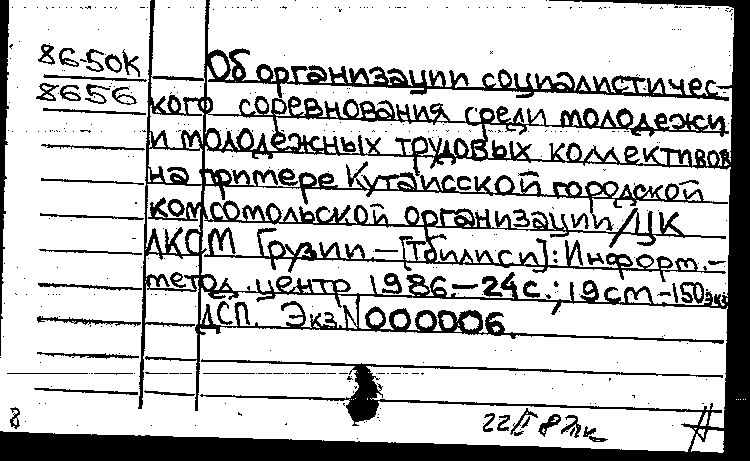 86-50К
8656
Об организации социалистичес-
кого соревнования среди молодежи
и молодежных трудовых коллективов
на примере Кутаисской городской
комсомольской организации/ЦК
ЛКСМ Грузии.-[Тбилиси]:Информ.-
метод. центр 1986.-24с.;19см-150экз
ДСП. Экз.N000006.
8
22/I 87